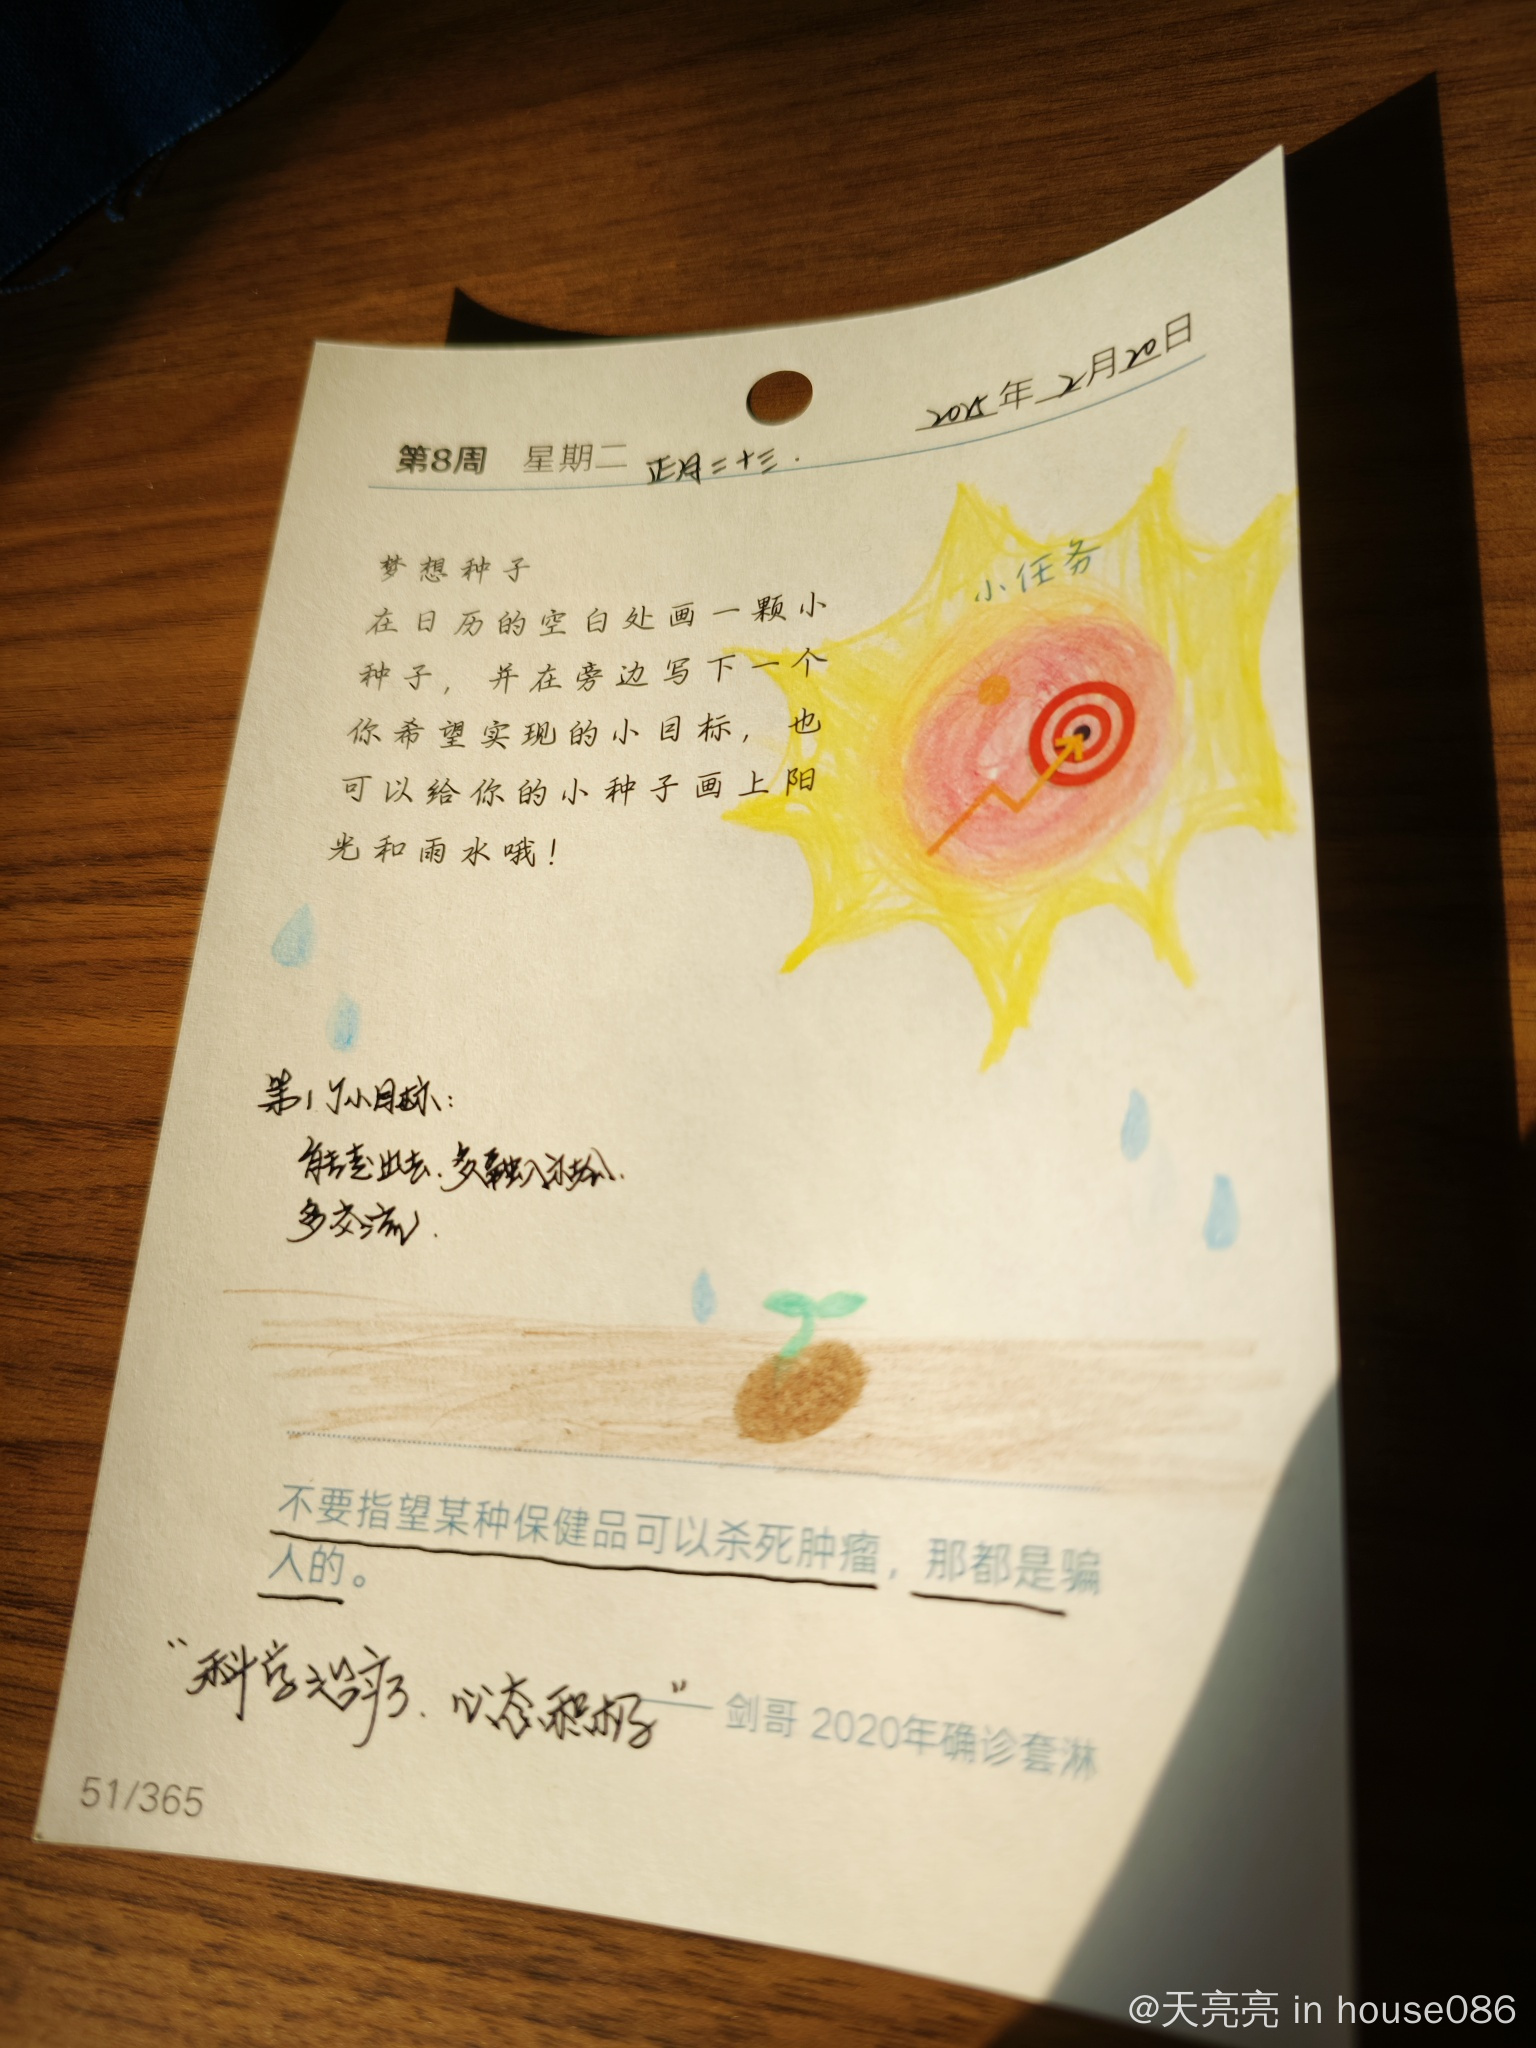 2025年2月20日
第8周 星期二 正月二十三.
小任务
梦想种子
在日历的空白处画一颗小
种子，并在旁边写下一个
你希望实现的小目标，也
可以给你的小种子画上阳
光和雨水哦！
第1个小目标：
能走出去.多融入社会.
多交流.
不要指望某种保健品可以杀死肿瘤，那都是骗
人的。
“科学治疗.心态积极”
—— 剑哥 2020年确诊套淋
51/365
@天亮亮 in house086